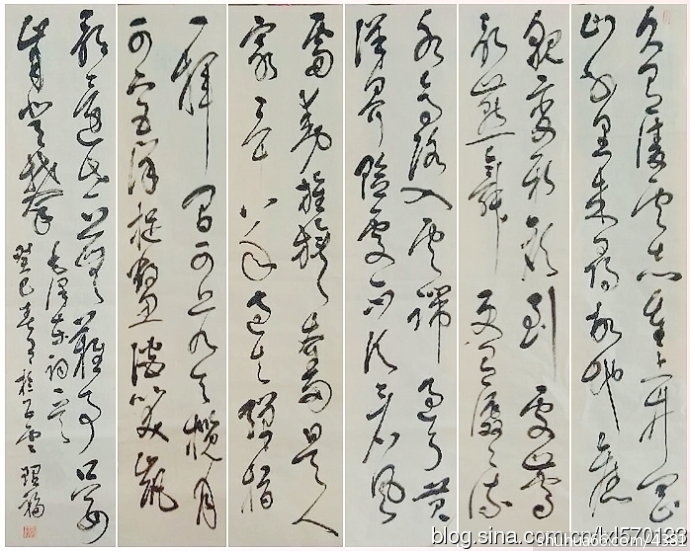 久有凌云志重上井冈
山千里来寻故地旧
貌变新颜到处莺
歌燕舞更有潺潺流
水高路入云端过了黄
洋界险处不须看风
雷动旌旗奋是人
寰三十八年过去弹指
一挥间可上九天揽月
可下五洋捉鳖谈笑凯
歌还世上无难事只要
肯登攀
毛泽东词一首
癸巳春月於
blog.sina.com.cn